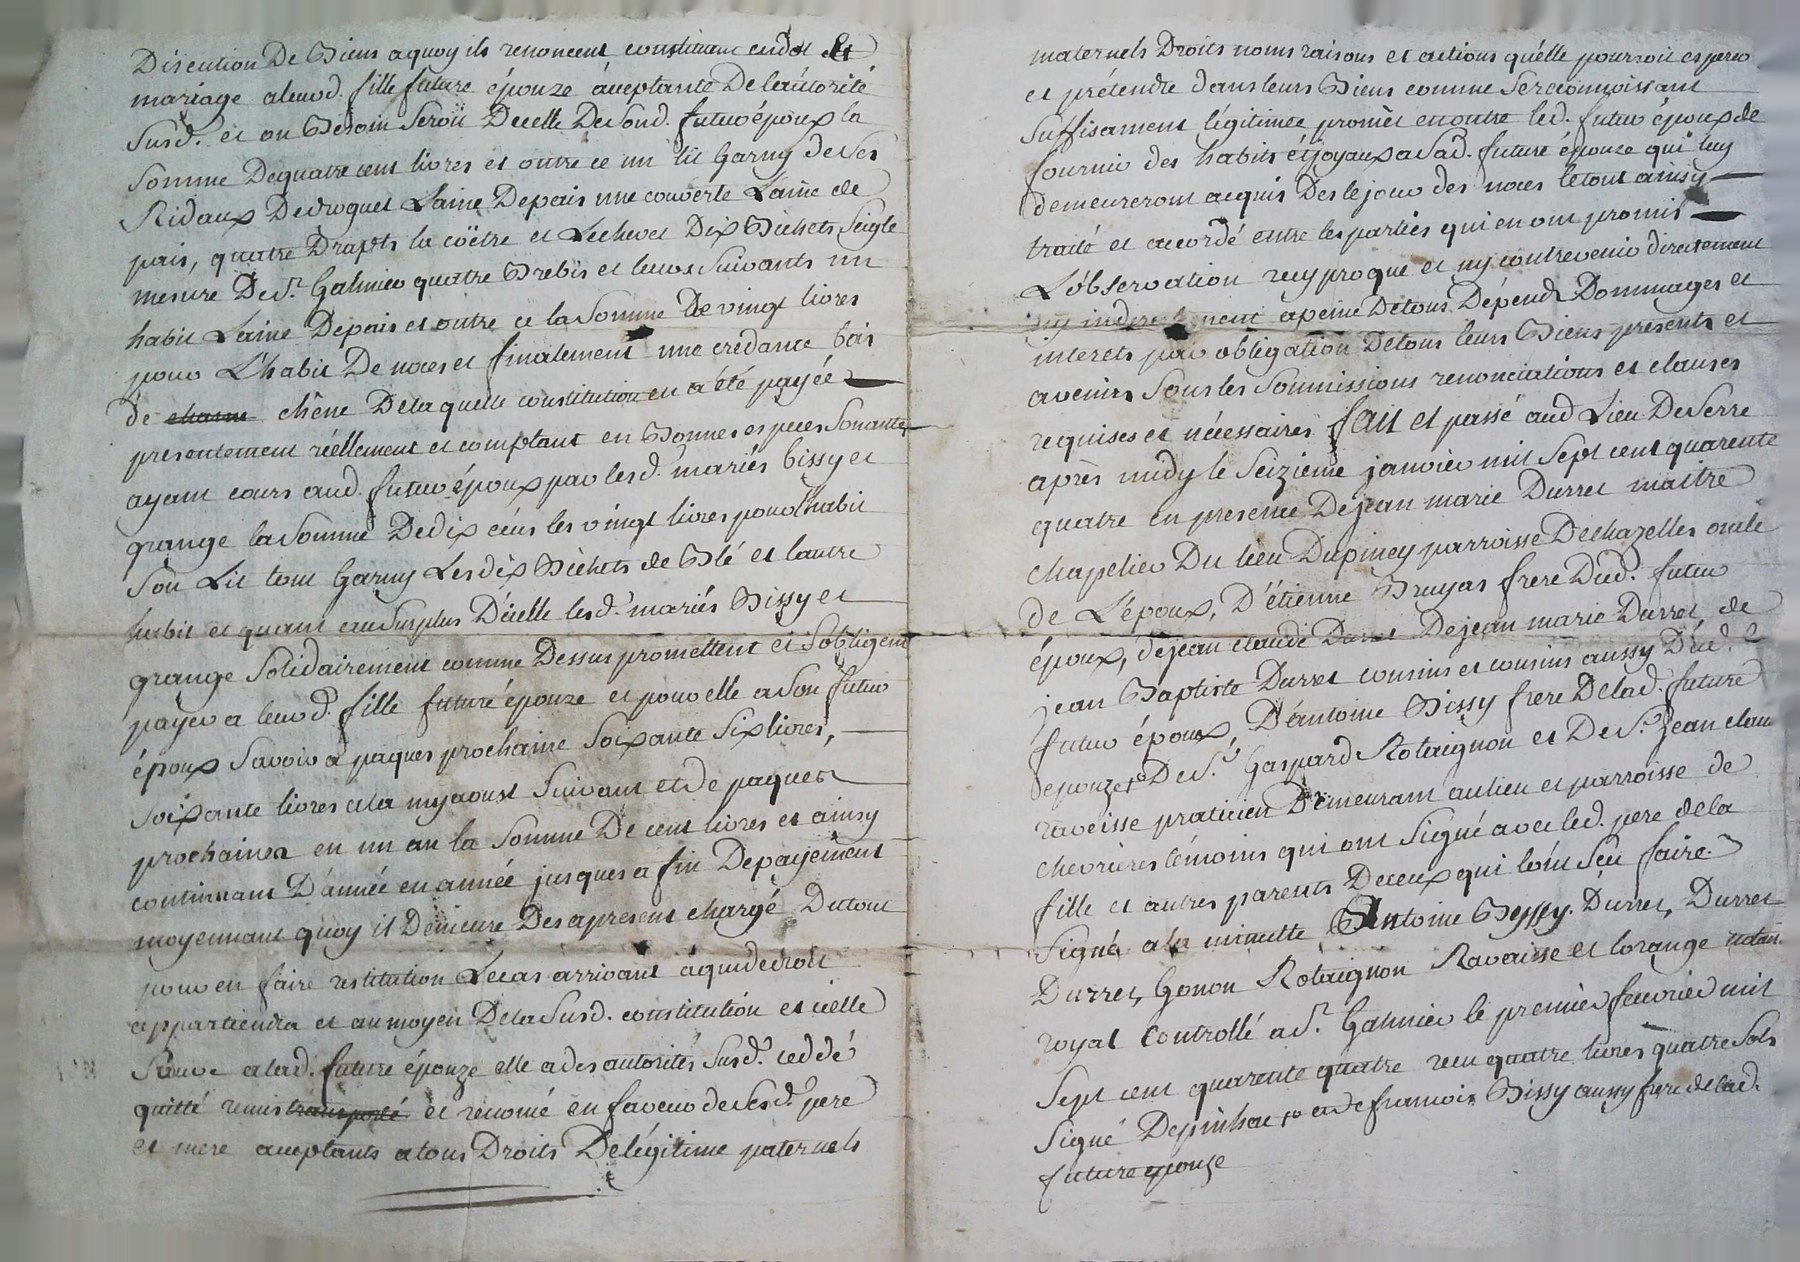 Discution De Biens aquoy ils renoncent constituent endot et
mariage aleurd. fille future épouze áceptante De láutorité
Susd. et on Besoin Seroit Decelle De Sond. futur époux la
Somme Dequatre cent livres et outre ce un lit Garny deses
Ridaux Dedroguet Laine Depaïs une couverte Laine de
païs, quatre Drapts la coëtre et Lechevet Dix Bichets Seigle
mesure De St. Galmier quatre Brebis et leurs Suivants un
habit Laine Depais et outre ce la Somme De vingt livres
pour L'habit De noces et finalement une crédance bois
de charne chêne De laquelle constitution en a été payée
presentement réellement et comptant en Bonnes especes Sonantes
ayant cours aud. futur époux par lesd. mariés bissy et
grange la Somme De dix écus les vingt livres pour l'habit
Son Lit tout Garny Les dix Bichets de Blé et lautre
habit et quant au Surplus D'icelle lesd. mariés Bissy et
grange Solidairement comme Dessus promettent et S'obligent
payer a leurd. fille future épouze et pour elle a Son futur
époux Savoir a paques prochaine Soixante Six livres,
Soixante livres ala myaoust Suivant et de paques
prochaines en un an la Somme De cent livres et ainsy
continuant D'année en année jusques a fin Depayement
moyennant quoy il Demeure Des apresent chargé Dutout
pour en faire restitution Le cas arrivant áquidedroit
appartiendra et au moyen De la Susd. constitution et icelle
Suive alad. future épouze elle a des autorités Susd. ceddé
quitté remis transporté et renoncé en faveur de Sesd. pere
et mere aceptants atous Droits De légitime paternels
maternels Droits noms raisons et actions qu'elle pourroit esperer
et prétendre dans leurs Biens comme Sereconnoissant
Suffisament légitimée, promèt en outre led. futur époux de
fournir des habits et joyaux a Sad. future épouze qui luy
demeureront acquis Des le jour des noces le tout ainsy
traité et acordé entre les parties qui en ont promis
L'observation recyproque et ny contrevenir directement
ny indirectement apeine De tous Dépends Dommages et
interets par obligation De tous leurs Biens presents et
avenirs Sous les Soumissions renonciations et clauses
requises et nécessaires fait et passé aud Lieu De Serre
après midy le Seizieme janvier mil Sept cent quarente
quatre en presence De jean marie Durret maitre
chapelier Du lieu Dupiney parroisse Dechazelles oncle
de L'époux, D'étienne Bruyas frere Dud. futur
époux, de jean claude Durret De jean marie Durret, de
jean Baptiste Durret cousins et cousins aussy Dud.
futur époux, D'antoine Bissy frere De lad. future
depouze De St. Gaspard Rotaignon et De St. jean clau
raveisse praticien Demeurant au lieu et parroisse de
chevrieres témoins qui ont Signé avec led. pere de la
fille et autres parents De ceux qui l'ont Sçu faire.
Signé a la minutte Antoine Byssy. Durret, Durret
Durret, Gonon Rotaignon Ravaisse et lorange notai
royal Controllé a St. Galmier le premier fevrier mil
Sept cent quarente quatre reçu quatre livres quatre Sols
Signé Depinhac + et de francois Bissy aussy frere de lad.
future epouze